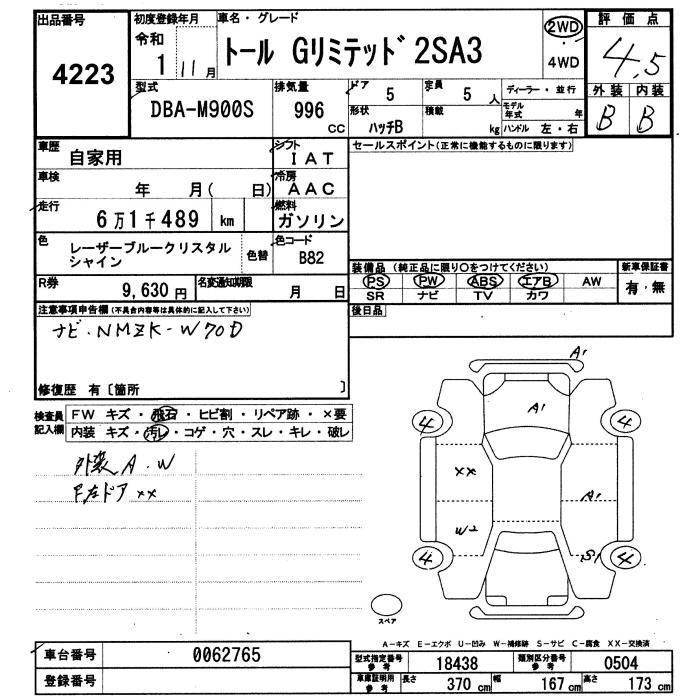 出品番号
4223
初度登録年月
令和
1 11月
車名・グレード
トール Gリミテッド 2SA3
2WD
4WD
評価点
4.5
外装 内装
B B
型式
DBA-M900S
排気量
996
CC
ドア
5
定員
5 人
形状
ハッチB
積載
kg
ディーラー・並行
モデル年式 年
ハンドル 左・右
車歴
自家用
シフト
IAT
車検
年 月( 日)
冷房
AAC
走行
6万1千489 km
燃料
ガソリン
色
レーザーブルークリスタル
シャイン
色替
色コード
B82
R券
9,630円
名変通知期限
月 日
セールスポイント(正常に機能するものに限ります)
装備品(純正品に限り○をつけてください)
PS PW ABS エアB AW
SR ナビ TV カワ
新車保証書
有・無
後日品
注意事項申告欄(不具合内容等は具体的に記入して下さい)
ナビ・NMZK-W70D
修復歴 有〔箇所 〕
検査員
記入欄
FW キズ・飛石・ヒビ割・リペア跡・×要
内装 キズ・汚レ・コゲ・穴・スレ・キレ・破レ
外装 A.W
F左ドア ××
A1
A1
4 4
××
A1
W2
S1
4 4
スペア
A-キズ E-エクボ U-凹み W-補修跡 S-サビ C-腐食 XX-交換済
車台番号
0062765
登録番号
型式指定番号
参考
18438
類別区分番号
参考
0504
車庫証明用
参考
長さ 370 cm
幅 167 cm
高さ 173 cm